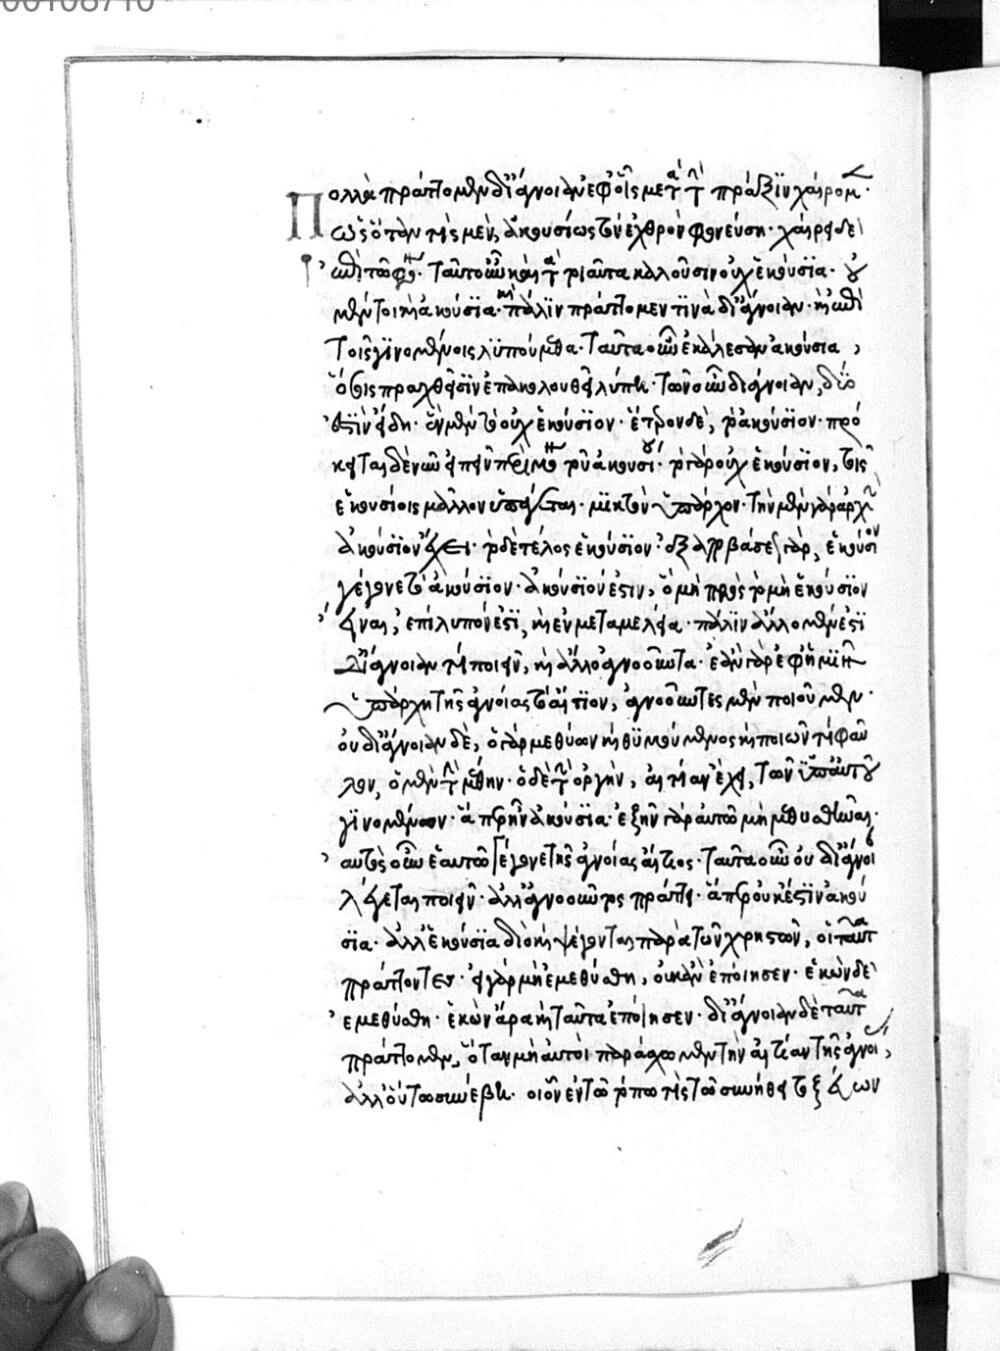 00108710
Πολλὰ πράττομεν δι' ἄγνοιαν ἐφ' οἷς μετὰ τὴν πρᾶξιν χαίρομεν·
ὡς ὅταν τὶς μὲν, ἀκουσίως τὸν ἐχθρὸν φονεύσῃ· χαίρει δὲ
ἐπὶ τῷ φόνῳ· ταῦτα οὖν καὶ τὰ τοιαῦτα καλοῦσιν οὐχ ἑκούσια· οὐ
μὴν τοι ἢ ἀκούσια· καὶ πάλιν πράττομεν τινὰ δι' ἄγνοιαν· καὶ ἐπὶ
τοῖς γινομένοις λυπούμεθα· ταῦτα οὖν ἐκάλεσαν ἀκούσια,
ὅσοις πραχθεῖσιν ἐπακολουθεῖ λύπη· τῶν οὖν δι' ἄγνοιαν, δύο
ἐστὶν εἴδη· ἓν μὲν τὸ οὐχ ἑκούσιον· ἕτερον δὲ, τὸ ἀκούσιον· πρό
κειται δὲ νῦν εἰπεῖν περὶ μόνου τοῦ ἀκουσίου· τὸ γὰρ οὐχ ἑκούσιον, τοῖς
ἑκουσίοις μᾶλλον ὑπάγεται· μικτὸν ὑπάρχον· τὴν μὲν γὰρ ἀρχὴν
ἀκούσιον ἔχει· τὸ δὲ τέλος ἑκούσιον· ἐξ ἀποβάσεως γὰρ, ἑκούσιον
γέγονε τὸ ἀκούσιον· ἀκούσιον ἐστιν, ὃ μὴ πρὸς τὸ μὴ ἑκούσιον
εἶναι, ἐπίλυπόν ἐστι, καὶ ἐν μεταμελείᾳ· πάλιν ἄλλο μέν ἐστι
δι' ἄγνοιαν τὶ ποιεῖν, καὶ ἄλλο ἀγνοοῦντα· ἐὰν γὰρ ἐφ' ἡμῖν
ὑπάρχῃ τῆς ἀγνοίας τὸ αἴτιον, ἀγνοοῦντες μὲν ποιοῦμεν·
οὐ δι' ἄγνοιαν δὲ, ὁ γὰρ μεθύων καὶ θυμούμενος καὶ ποιῶν τὶ φαῦ
λον, ὁ μὲν τὴν μέθην· ὁ δὲ τὴν ὀργὴν, αἰτίαν ἔχει, τῶν ὑπ' αὐτοῦ
γινομένων· ἅπερ ἦν ἀκούσια· ἐξῆν γὰρ αὐτῷ μὴ μεθυσθῆναι·
αὐτὸς οὖν ἑαυτῷ γέγονε τῆς ἀγνοίας αἴτιος· ταῦτα οὖν οὐ δι' ἄγνοι
λέγεται ποιεῖν· ἀλλ' ἀγνοοῦντος πράττει· ἅπερ οὐκ ἔστιν ἀκού
σια· ἀλλ' ἑκούσια διὸ καὶ ψέγονται παρὰ τῶν χρηστῶν, οἱ ταῦτα
πράττοντες· εἰ γὰρ μὴ ἐμεθύσθη, οὐκ ἂν ἐποίησεν· ἑκὼν δὲ
ἐμεθύσθη· ἑκὼν ἄρα καὶ ταῦτα ἐποίησεν· δι' ἄγνοιαν δὲ ταῦτα
πράττομεν, ὅταν μὴ αὐτοὶ παράσχωμεν τὴν αἰτίαν τῆς ἀγνοίας,
ἀλλ' οὕτω συνέβη· οἷον ἐν τῷ τόπῳ τὶς τῷ συνήθει τοξεύων